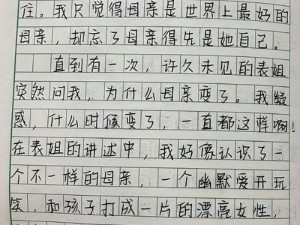 住。我只觉得母亲是世界上最好的
母亲，却忘了母亲得先是她自己。
直到有一次，许久未见的表姐
突然问我，为什么母亲变了。我疑
惑，什么时候变了，一直都这样啊！
在表姐的讲述中，我好像认识了一
个不一样的母亲，一个幽默爱开玩
笑，和孩子打成一片的漂亮女性，